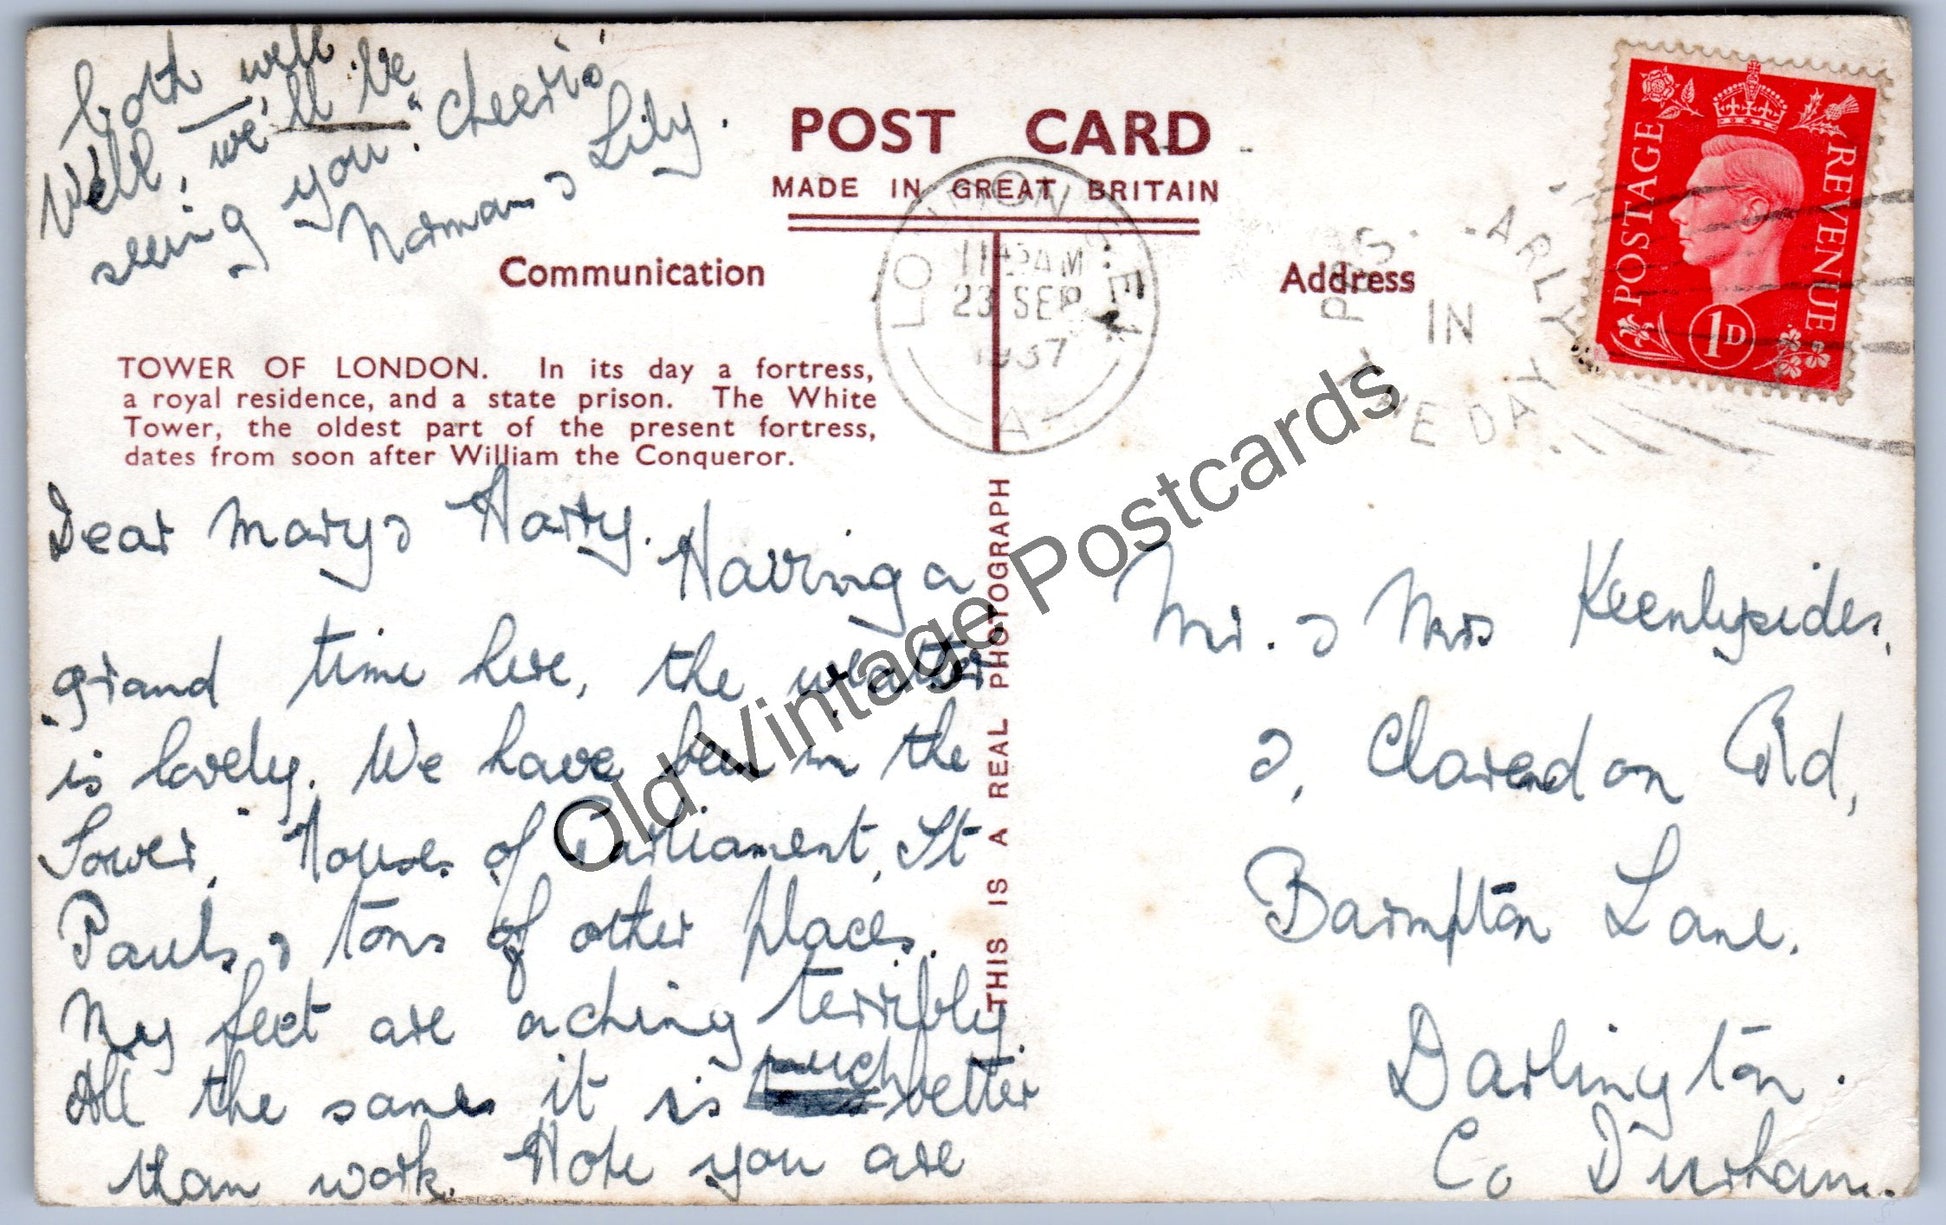 both well.
Well, we'll be
seeing you. "Cheerio"
Norman & Lily.
POST CARD
MADE IN GREAT BRITAIN
Communication
Address
TOWER OF LONDON. In its day a fortress,
a royal residence, and a state prison. The White
Tower, the oldest part of the present fortress,
dates from soon after William the Conqueror.
Dear Mary & Harry. Having a
grand time here, the weather
is lovely. We have been in the
Tower, Houses of Parliament, St
Pauls & tons of other places.
My feet are aching terribly
All the same it is much better
than work. Hope you are
THIS IS A REAL PHOTOGRAPH
LONDON S.E.
11 45 AM
23 SEP
1937
A
POST EARLY
IN
THE DAY
POSTAGE
REVENUE
1D
Mr. & Mrs Keenlysides,
2, Clarendon Rd,
Barmpton Lane.
Darlington.
Co Durham.
Old Vintage Postcards